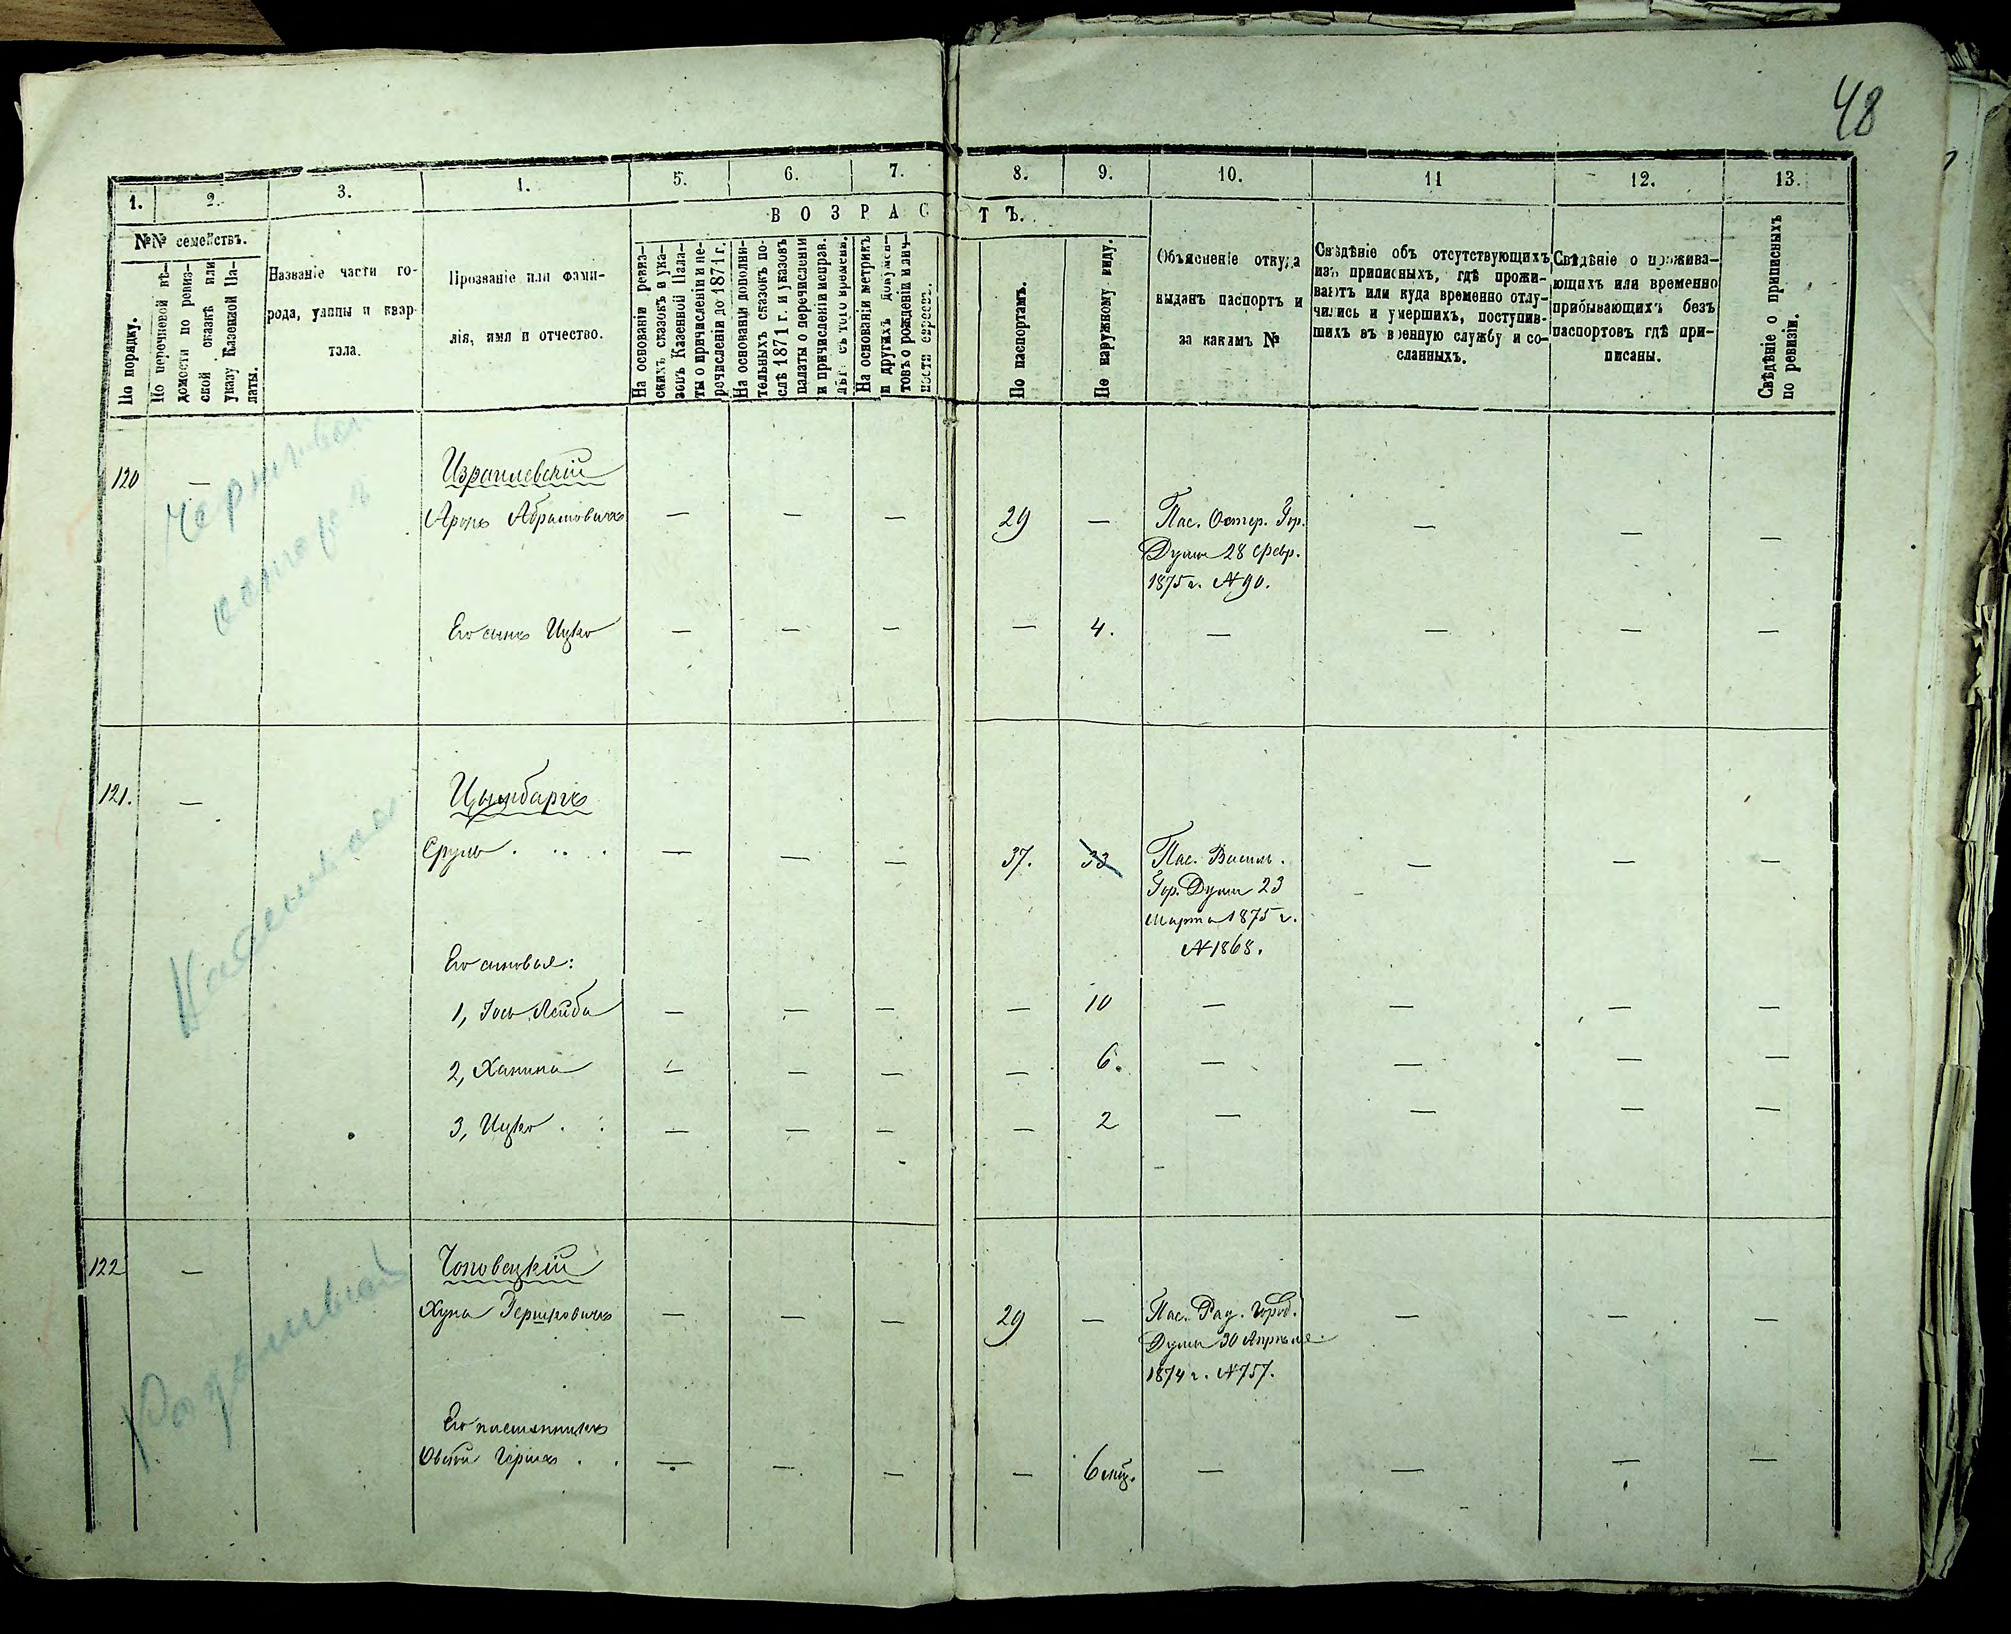 48
1. 2. 3. 4. 5. 6. 7. 8. 9. 10. 11 12. 13.
№№ семействъ.
По порядку.
По перечневой вѣ-
домости по ревиз-
ской сказкѣ или
указу Казенной Па-
латы.
Названіе части го-
рода, улицы и квар-
тала.
Прозваніе или фами-
лія, имя и отчество.
ВОЗРАСТЪ.
На основаніи ревиз-
скихъ сказокъ и ука-
зовъ Казенной Пала-
ты о причисленіи и пе-
речисленіи до 1871 г.
На основаніи дополни-
тельныхъ сказокъ по-
слѣ 1871 г. и указовъ
палаты о перечисленіи
и причисленіи исправ.
лѣт съ того времени.
На основаніи метрикъ
и другихъ докумен-
товъ о рожденіи и лич-
ности евреевъ.
По паспортамъ.
По наружному виду.
Объясненіе откуда
выданъ паспортъ и
за какимъ №
Свѣдѣніе объ отсутствующихъ
изъ приписныхъ, гдѣ прожи-
ваютъ или куда временно отлу-
чились и умершихъ, поступив-
шихъ въ военную службу и со-
сланныхъ.
Свѣдѣніе о прожива-
ющихъ или временно
прибывающихъ безъ
паспортовъ гдѣ при-
писаны.
Свѣдѣніе о приписныхъ
по ревизіи.
120 — Израилевскій
Аронъ Абрамовичъ — — — 29 — Пас. Остер. Гор. — — —
Думы 28 февр.
1875 г. №90.
Его сынъ Ицко — — — — 4. — — — —
121. — Цымбаргъ
Сруль . . . — — — 37. 33 Пас. Васильк. — — —
Гор. Думы 23
Марта 1875 г.
№1868.
Его сыновья:
1, Іось Лейба — — — — 10 — — — —
2, Ханина — — — — 6. — — — —
3, Ицко . : — — — — 2 — — — —
122 — Чоповецкій
Хуна Гершковичъ — — — 29 — Пас. Рад. Город. — — —
Думы 30 Апрѣля
1874 г. №757.
Его племянникъ
Овсей Гершъ . . — — — — 6 мѣц. — — — —